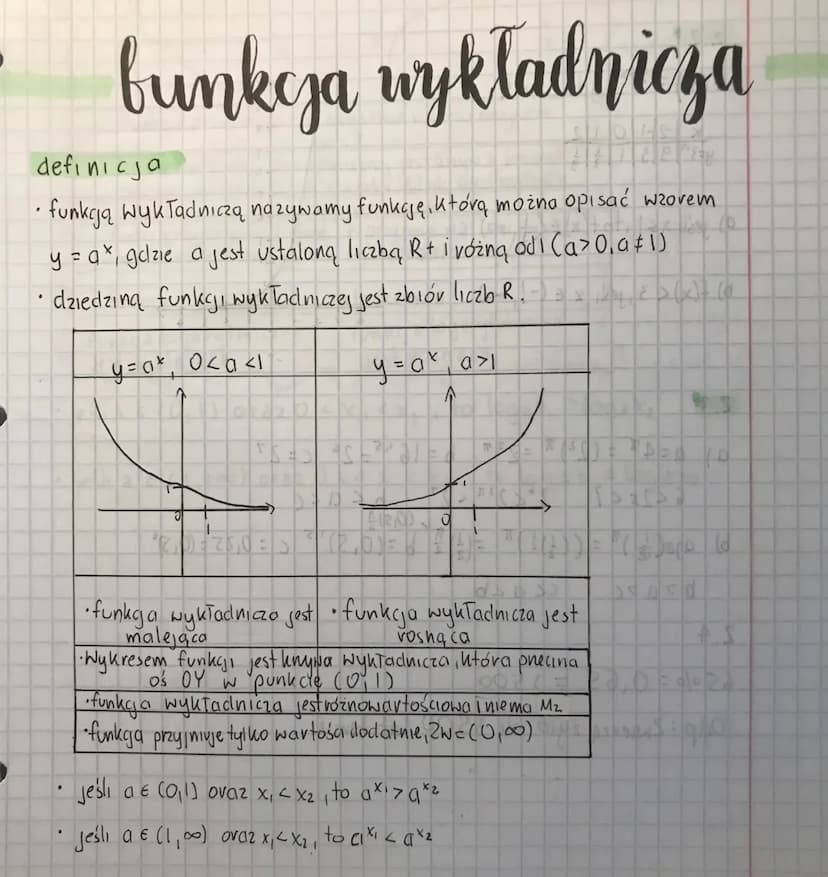 funkcja wykładnicza
definicja
• funkcją wykładniczą nazywamy funkcję, którą można opisać wzorem
y = aˣ, gdzie a jest ustaloną liczbą R+ i różną od 1 (a>0, a≠1)
• dziedziną funkcji wykładniczej jest zbiór liczb R.
y=aˣ, 0<a<1
y=aˣ, a>1
1
0
1
1
0
1
• funkcja wykładnicza jest
malejąca
• funkcja wykładnicza jest
rosnąca
• Wykresem funkcji jest krzywa wykładnicza, która przecina
oś OY w punkcie (0,1)
• funkcja wykładnicza jest różnowartościowa i nie ma Mz
• funkcja przyjmuje tylko wartości dodatnie, Zw=(0,∞)
• jeśli a ∈ (0,1) oraz x₁<x₂, to aˣ¹>aˣ²
• jeśli a ∈ (1,∞) oraz x₁<x₂, to aˣ¹<aˣ²